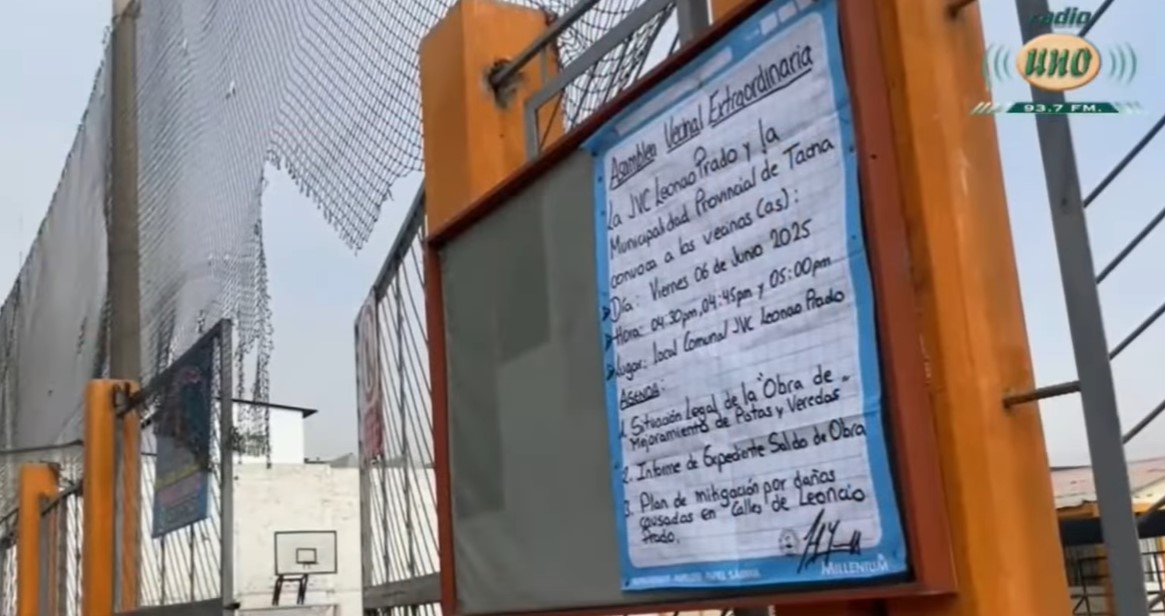 radio
UNO
93.7 FM.
Asamblea Vecinal Extraordinaria
La JVC Leoncio Prado y la
Municipalidad Provincial de Tacna
convoca a los vecinos (as):
Día: Viernes 06 de Junio 2025
Hora: 04:30pm, 04:45pm y 05:00pm
Lugar: local Comunal JVC Leoncio Prado
AGENDA:
1. Situación Legal de la "Obra de
Mejoramiento de Pistas y Veredas"
2. Informe de Expediente Saldo de Obra
3. Plan de mitigación por daños
causados en Calles de Leoncio
Prado.
MILLENIUM